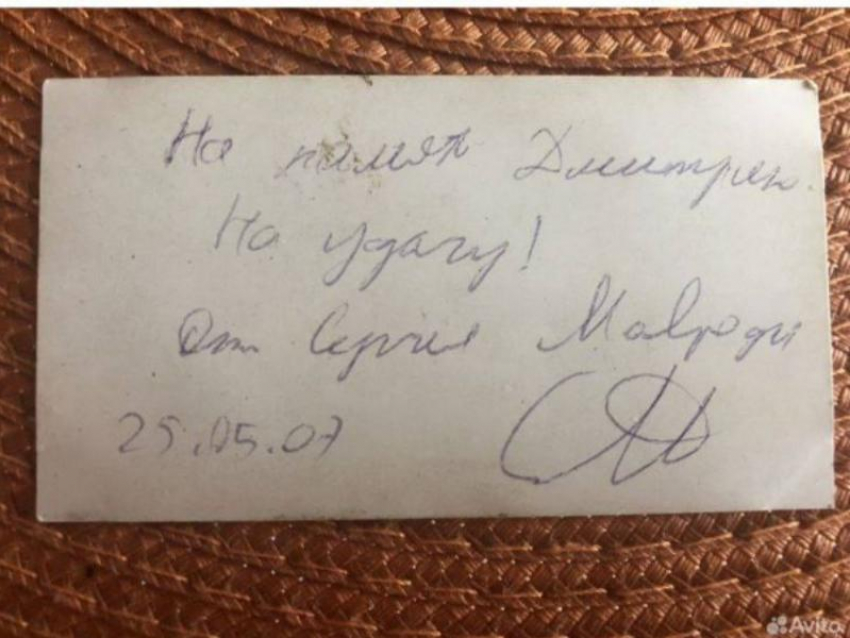 На память Дмитрию.
На удачу!
От Сергея Мавроди
25.05.07
Avito